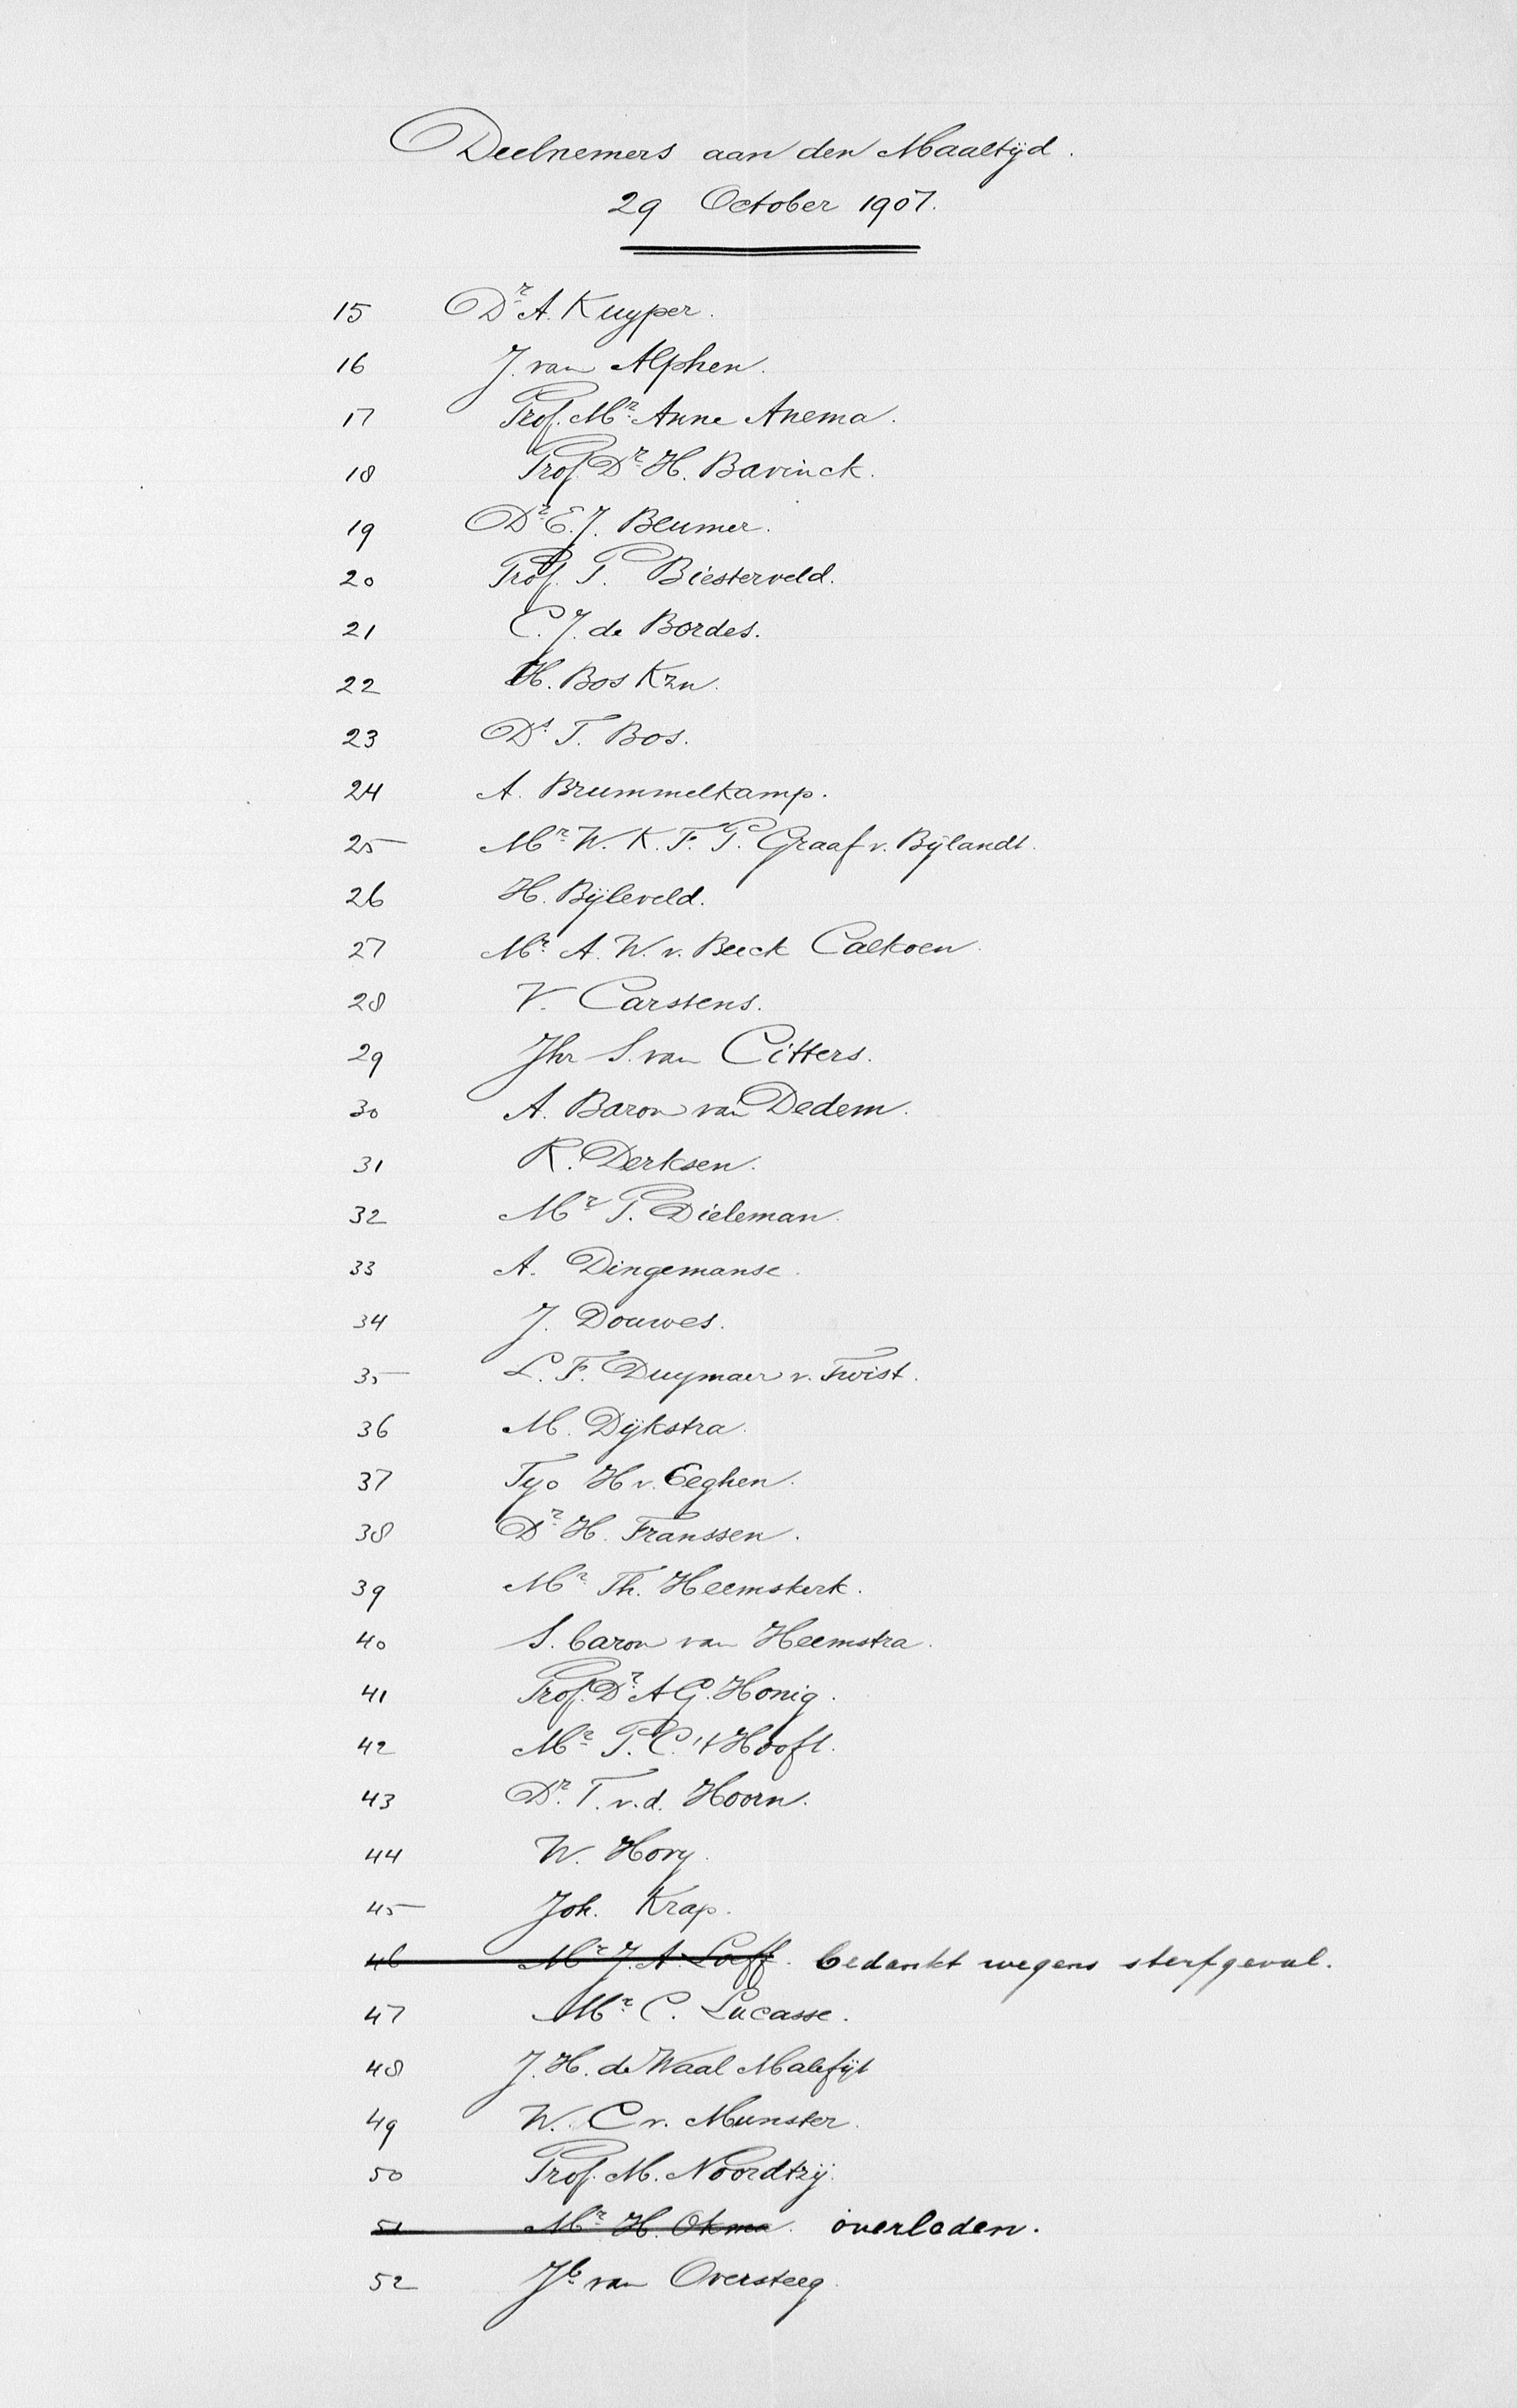 Deelnemers aan den Maaltijd.
29 October 1907.
15 Dr. A. Kuyper.
16 J. van Alphen.
17 Prof. Mr. Anne Anema.
18 Prof. Dr. H. Bavinck.
19 Dr. E. J. Beumer.
20 Prof. P. Biesterveld.
21 C. J. de Bordes.
22 H. Bos Kzn.
23 Ds. T. Bos.
24 A. Brummelkamp.
25 Mr. W. K. F. P. Graaf v. Bijlandt.
26 H. Bijleveld.
27 Mr. A. W. v. Beeck Calkoen.
28 V. Carstens.
29 Jhr S. van Citters.
30 A. Baron van Dedem.
31 K. Derksen.
32 Mr. P. Dieleman.
33 A. Dingemanse.
34 J. Douwes.
35 L. F. Duymaer v. Twist.
36 M. Dijkstra.
37 Tyo H v. Eeghen.
38 Dr. H. Franssen.
39 Mr. Th. Heemskerk.
40 S. baron van Heemstra.
41 Prof. Dr. A G. Honig.
42 Mr. P. C. 't Hooft.
43 Dr. T. v. d. Hoorn.
44 W. Hovy.
45 Joh. Krap.
46 Mr. J. A. Loeff. bedankt wegens sterfgeval.
47 Mr. C. Lucasse.
48 J. H. de Waal Malefijt
49 W. C v. Munster.
50 Prof. M. Noordtzij.
51 Mr. H. Okma. overleden.
52 Jb. van Oversteeg.